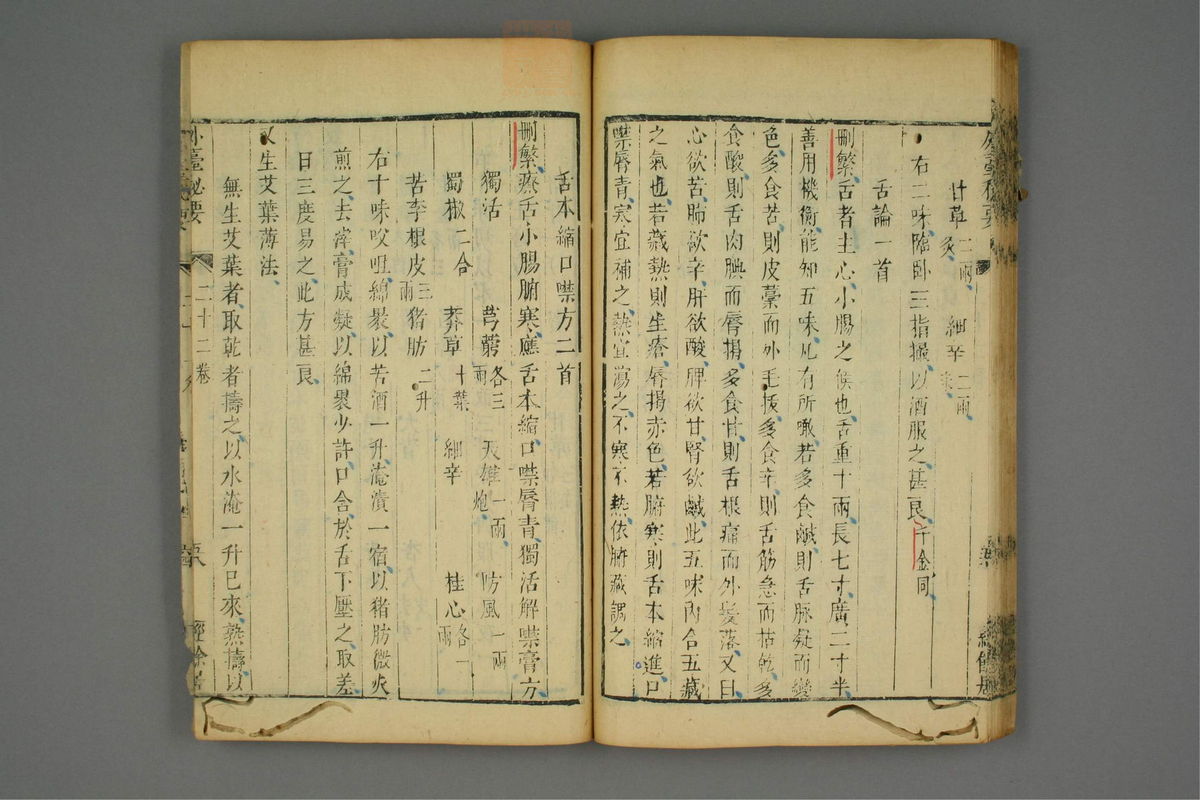 甘草 二兩 炙 細辛 二兩
右二味臨卧三指撮以酒服之甚良千金同
舌論一首
刪繁舌者主心小腸之候也舌重十兩長七寸廣二寸半
善用機衡能知五味凡有所噉若多食鹹則舌脉凝而變
色多食苦則皮藁而外毛拔多食辛則舌筋急而枯乾多
食酸則舌肉腆而唇揭多食甘則舌根痛而外髮落又曰
心欲苦肺欲辛肝欲酸脾欲甘腎欲鹹此五味內合五藏
之氣也若藏熱則生瘡唇揭赤色若腑寒則舌本縮進口
噤唇青寒宜補之熱宜瀉之不寒不熱依腑藏調之
舌本縮口噤方二首
刪繁療舌小腸腑寒應舌本縮口噤唇青獨活解噤膏方
獨活 芎藭 各三兩 天雄 一兩炮 防風 一兩
蜀椒 二合 莽草 十葉 細辛 桂心 各一兩
苦李根皮 三兩 猪肪 二升
右十味㕮咀綿裹以苦酒一升淹漬一宿以猪肪微火
煎之去滓膏成凝以綿裹少許口含於舌下壓之取差
日三度易之此方甚良
又生艾葉薄法
無生艾葉者取乾者擣之以水淹一升已來熟擣以
外臺秘要 二十二卷